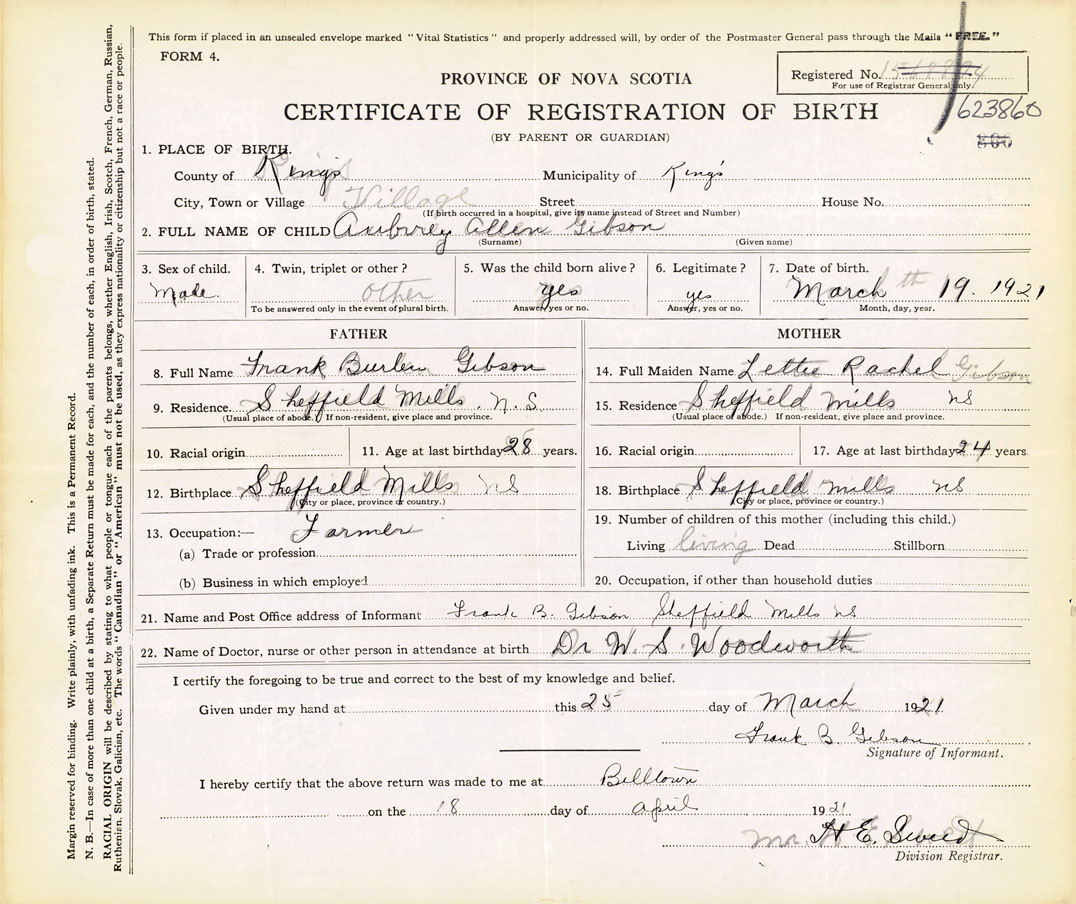 This form if placed in an unsealed envelope marked "Vital Statistics" and properly addressed will, by order of the Postmaster General pass through the Mails "FREE."
FORM 4.
PROVINCE OF NOVA SCOTIA
Registered No.
For use of Registrar General only.
CERTIFICATE OF REGISTRATION OF BIRTH
623860
(BY PARENT OR GUARDIAN)
1. PLACE OF BIRTH.
County of King's Municipality of King's
City, Town or Village Village Street House No.
(If birth occurred in a hospital, give its name instead of Street and Number)
2. FULL NAME OF CHILD Auburey Allen Gibson
(Surname) (Given name)
3. Sex of child. 4. Twin, triplet or other? 5. Was the child born alive? 6. Legitimate? 7. Date of birth.
Male. other yes yes March 19th. 1921
To be answered only in the event of plural birth. Answer, yes or no. Answer, yes or no. Month, day, year.
FATHER
8. Full Name Frank Burlen Gibson
9. Residence. Sheffield Mills. N.S
(Usual place of abode.) If non-resident, give place and province.
10. Racial origin 11. Age at last birthday 28 years.
12. Birthplace Sheffield Mills NS
(City or place, province or country.)
13. Occupation:— Farmer
(a) Trade or profession
(b) Business in which employed
MOTHER
14. Full Maiden Name Lettie Rachel Gibson
15. Residence Sheffield Mills NS
(Usual place of abode.) If non-resident, give place and province.
16. Racial origin 17. Age at last birthday 24 years.
18. Birthplace Sheffield Mills NS
(City or place, province or country.)
19. Number of children of this mother (including this child.)
Living living Dead Stillborn
20. Occupation, if other than household duties
21. Name and Post Office address of Informant Frank B. Gibson Sheffield Mills NS
22. Name of Doctor, nurse or other person in attendance at birth Dr W. S. Woodworth
I certify the foregoing to be true and correct to the best of my knowledge and belief.
Given under my hand at this 25 day of March 1921.
Frank B Gibson
Signature of Informant.
I hereby certify that the above return was made to me at Billtown
on the 18 day of April 1921
H. E.
Division Registrar.
Margin reserved for binding. Write plainly, with unfading ink. This is a Permanent Record.
N. B.—In case of more than one child at a birth, a Separate Return must be made for each, and the number of each, in order of birth, stated.
RACIAL ORIGIN will be described by stating to what people or tongue each of the parents belongs, whether English, Irish, Scotch, French, German, Russian,
Ruthenian, Slovak, Galician, etc. The words "Canadian" or "American" must not be used, as they express nationality or citizenship but not a race or people.